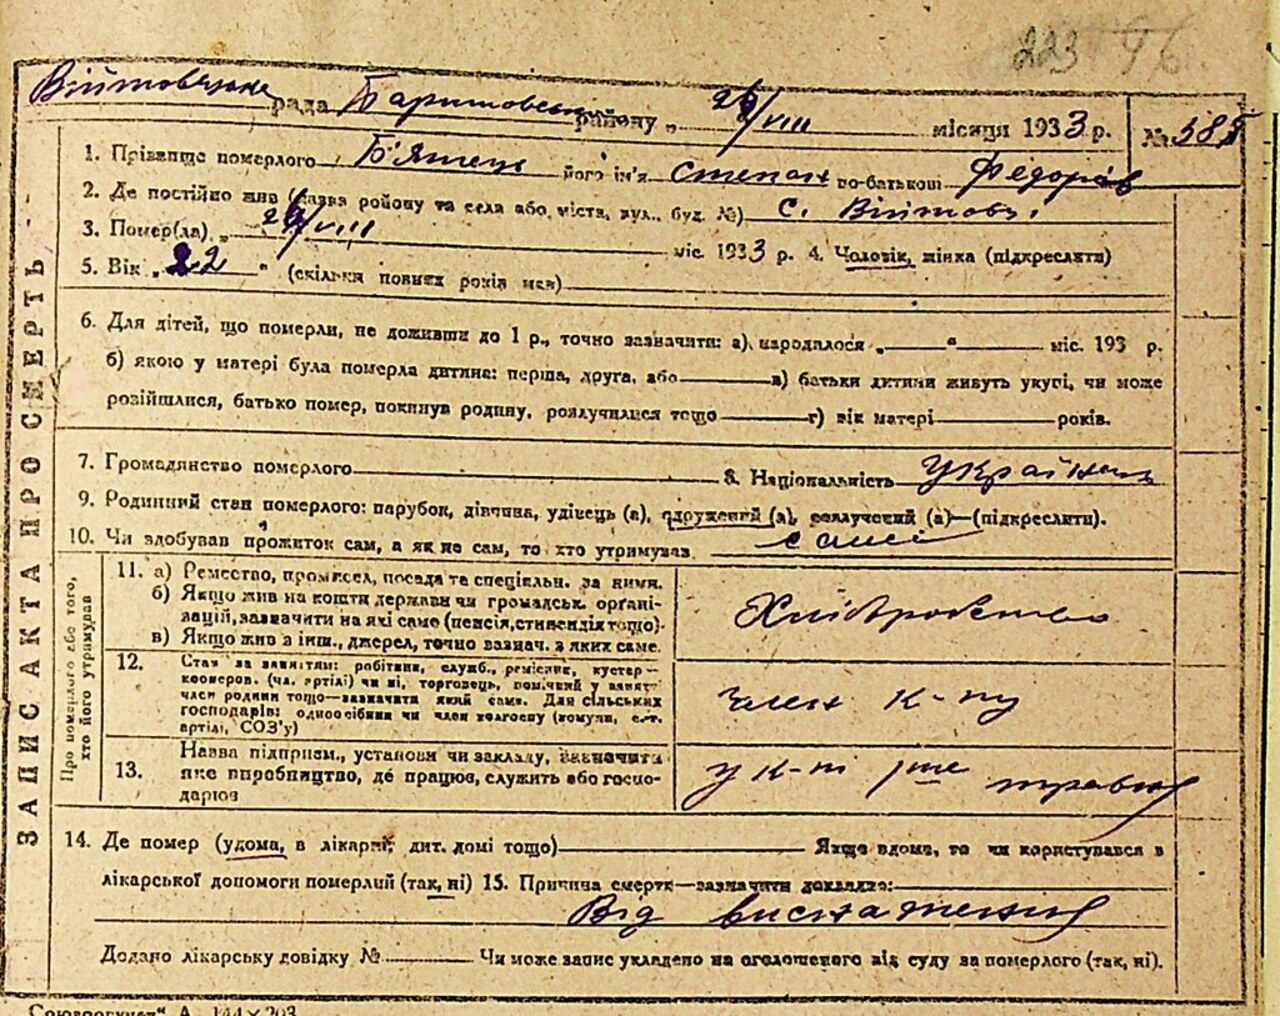 223 96
Війтовецька рада Баришовського району „ 26/VIII місяця 1933 р. № 385
1. Прізвище померлого Б'ятець його ім'я Степан по-батькові Федорів
2. Де постійно жив (назва району та села або міста, вул., буд. №) с. Війтовці
3. Помер(ла) „ 26/VIII міс. 1933 р. 4. Чоловік, жінка (підкреслити)
5. Вік „ 22 “ (скільки повних років мав)
6. Для дітей, що померли, не доживши до 1 р., точно зазначити: а) народалося „ “ міс. 193 р.
б) якою у матері була померла дитина: перша, друга, або в) батьки дитини живуть укупі, чи може
розійшлися, батько помер, покинув родину, розлучилися тощо г) вік матері років.
7. Громадянство померлого 8. Національність Українець
9. Родинний стан померлого: парубок, дівчина, удівець (а), одружений (а), розлучений (а)—(підкреслити).
10. Чи здобував прожиток сам, а як не сам, то хто утримував самі
ЗАПИС АКТА ПРО СМЕРТЬ
Про померлого або того, хто його утримував
11. а) Ремество, промисел, посада та спеціяльн. за ними.
б) Якщо жив на кошти держави чи громадськ. органі-
зацій, зазначити на які саме (пенсія, стипендія тощо).
в) Якщо жив з інш., джерел, точно вазнач. з яких саме.
Хліборобство
12. Стан за заняттям: робітник, служб., ремісник, кустар—
кооперов. (чл. артілі) чи ні, торговець, помічний у занят-
члси родини тощо—зазначити який саме. Для сільських
господарів: одноосібник чи член колгоспу (комуни, с.-г.
артілі, СОЗ'у)
член к-пу
13. Назва підприєм., установи чи закладу, визначити
яке виробництво, де працює, служить або госпо-
дарює
у к-пі 1ше травня
14. Де помер (удома, в лікарні, дит. домі тощо) Якщо вдома, то чи користувався в
лікарської допомоги померлий (так, ні) 15. Причина смерти—зазначити докладно:
Від виснаження
Додано лікарську довідку № Чи може запис укладено на оголошеного від суду за померлого (так, ні).
А. 144×203